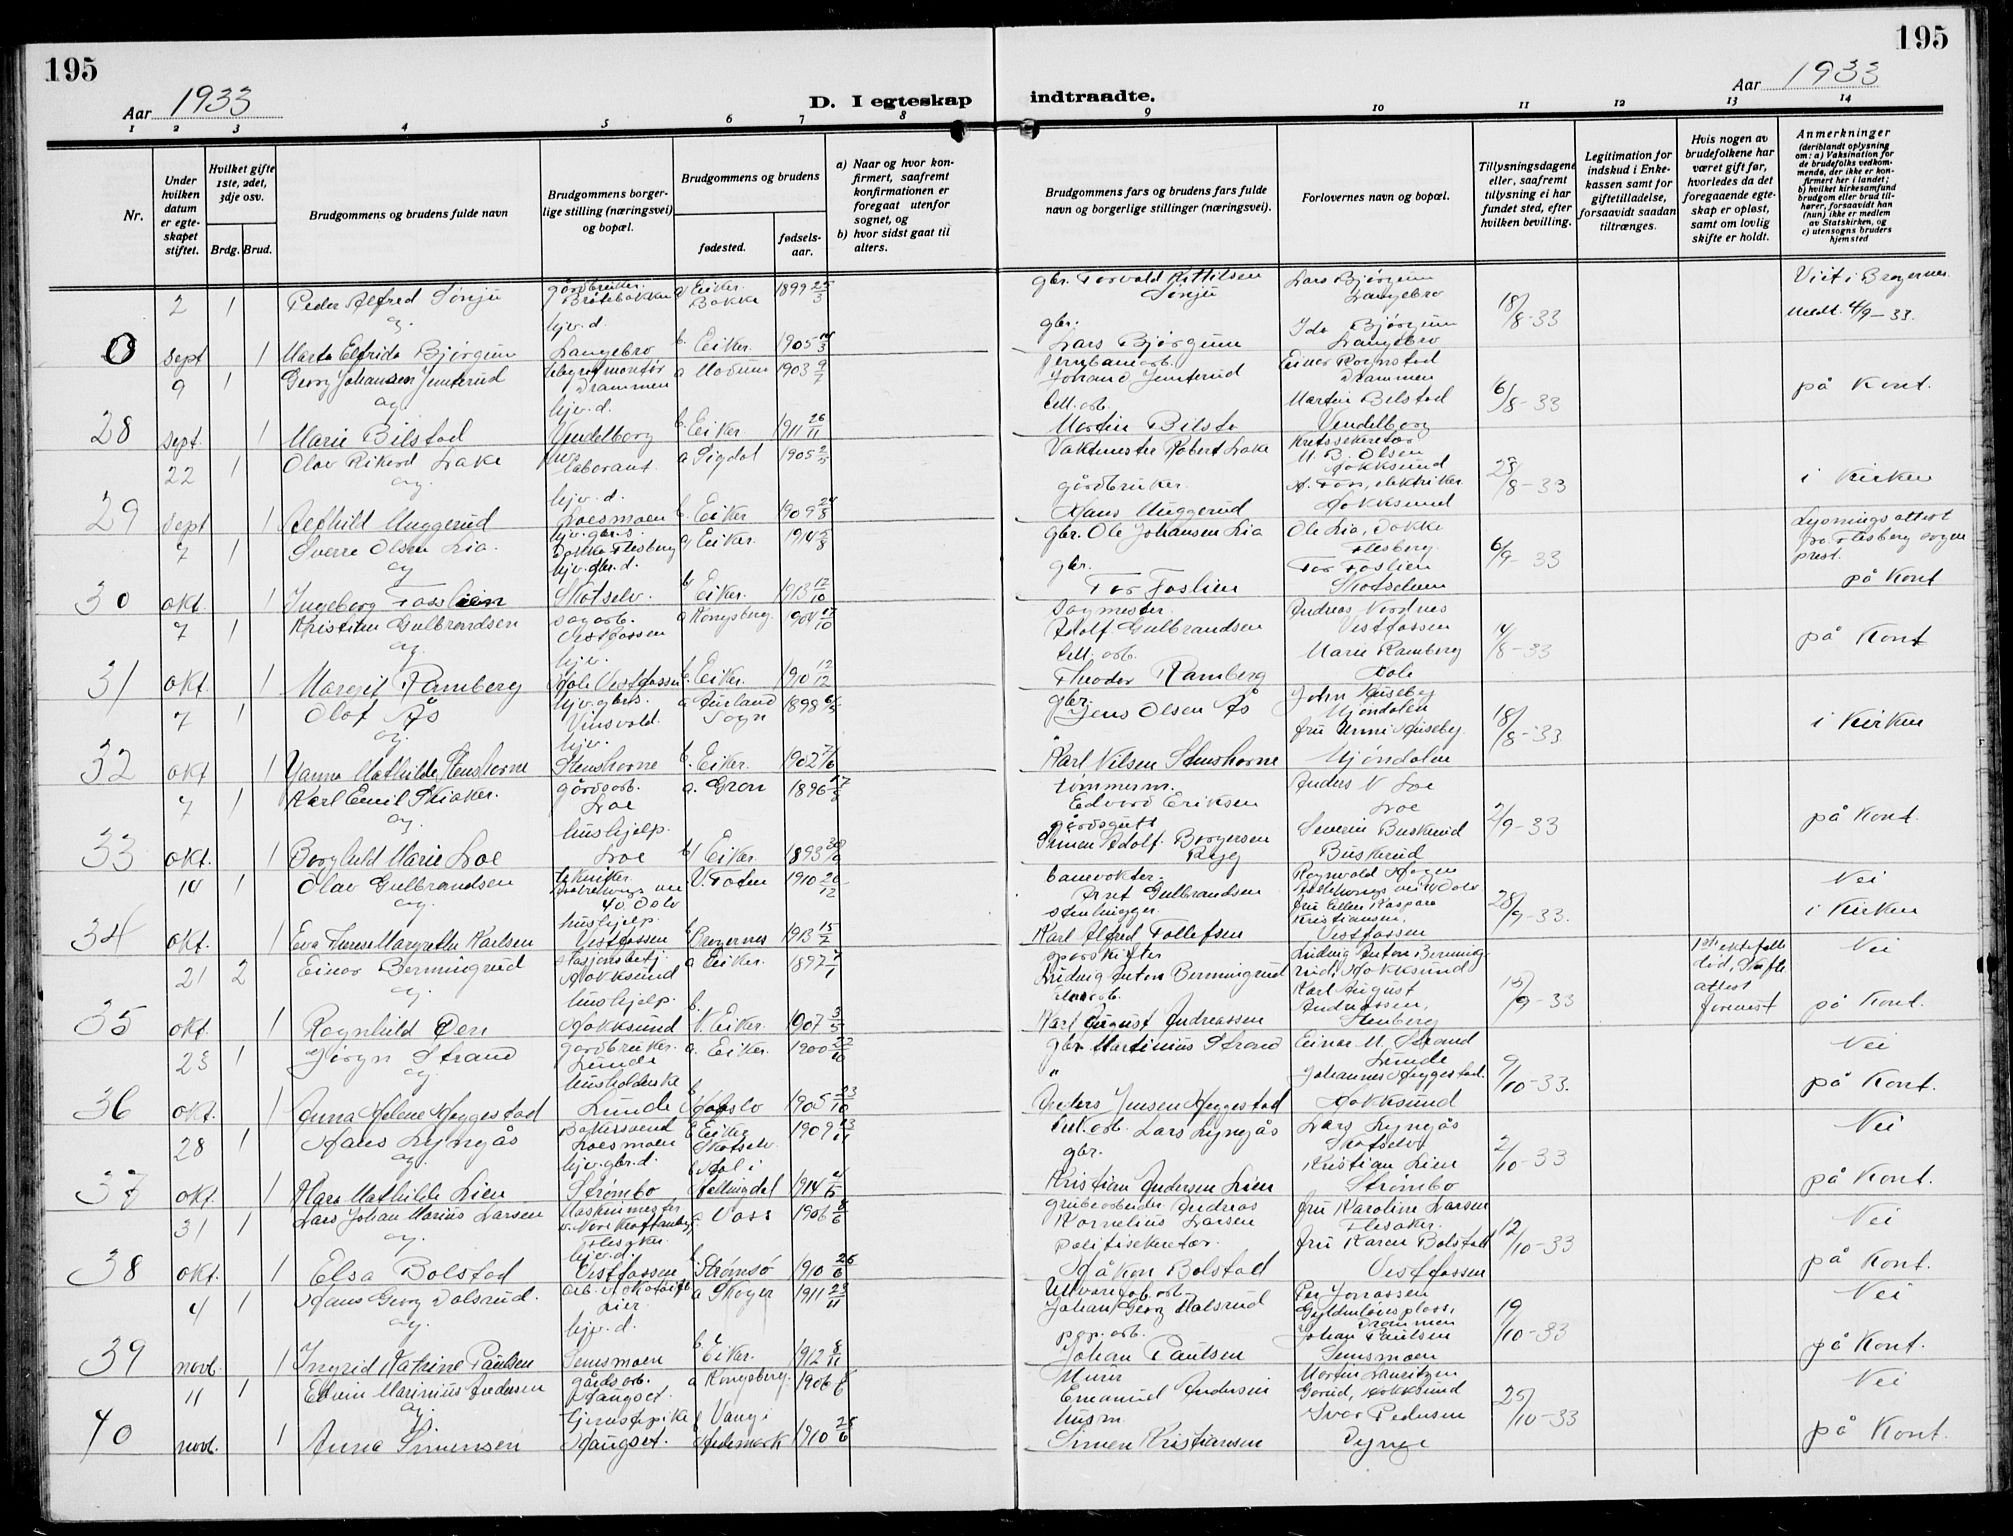 195
195
Aar 1933
D. I egteskap
indtraadte.
Aar 1933
1 2 3 4 5 6 7 8
9 10 11 12 13 14
Nr.
Under hvilken datum er egteskapet stiftet.
Hvilket gifte 1ste, 2det, 3dje osv.
Brdg. Brud.
Brudgommens og brudens fulde navn
Brudgommens borgerlige stilling (næringsvei) og bopæl.
Brudgommens og brudens
fødested.
fødselsaar.
a) Naar og hvor konfirmert, saafremt konfirmationen er foregaat utenfor sognet, og
b) hvor sidst gaat til alters.
Brudgommens fars og brudens fars fulde navn og borgerlige stillinger (næringsvei).
Forlovernes navn og bopæl.
Tillysningsdagene eller, saafremt tillysning ei har fundet sted, efter hvilken bevilling.
Legitimation for indskud i Enkekassen samt for giftetilladelse, forsaavidt saadan tiltrænges.
Hvis nogen av brudefolkene har været gift før, hvorledes da det foregaaende egteskap er opløst, samt om lovlig skifte er holdt.
Anmerkninger
(deriblandt oplysning om: a) Vaksination for de brudefolks vedkommende, der ikke er konfirmert her i landet;
b) hvilket kirkesamfund brudgom eller brud tilhører, forsaavidt han (hun) ikke er medlem av Statskirken, og
c) utensogns bruders hjemsted
2 1 Peder Alfred Sønju gårdbruker. Bråtebakken a Eiker. Bakke 1899 25/3 gbr. Torvald Kittilsen Sønju Lars Bjørgum Langebro 18/8-33 Viet i Bragernes
og hjv. d. gbr. Ida Bjørgum meldt 4/9-33.
0 sept 1 Marta Elfrida Bjørgum Langebro b. Eiker. 1905 Lars Bjørgum Langebro
9 1 Georg Johansen Jemterud Drammen a Modum 1903 9/7 Johan Jemterud Einar Rognstad Drammen 6/8-33 på Kont.
og hjv. d. Martin Bilstad
28 sept. 1 Marie Bilstad Vendelborg b. Eiker. 1911 26/11 Martin Bilsta Vendelborg
22 1 Olav Rikard Lake laborant a Sigdal 1905 2/5 Vaktmester Robert Lake Kretssekretær M. B. Olsen Hokksund 23/8-33 i Kirken
og hjv. d. gårdbruker. A. Foss, elektriker
29 sept 1 Aeshild Muggerud Loesmoen b. Eiker 1909 24/8 Hans Muggerud Hokksund
7 1 Sverre Olsen Lia. hjv. gbr. s. Dokka Flesberg a Eiker. 1914 2/8 gbr. Ole Johansen Lia Ole Lia, Dokka Flesberg. 6/9-33 Lysningsattest fra Flesberg sogneprest.
og hjv. gbr. d. gbr. Tor Foslien
30 okt. 1 Ingeborg Fosslien Skotselv. b Eiker. 1913 12/10 Tor Foslien Skotselven på Kont
7 1 Kristian Gulbrandsen sagarb. Vestfossen a Kongsberg 1904 17/10 Sagmester. Adolf Gulbrandsen Andreas Nordnes Vestfossen 14/8-33 på Kont
og hjv. Cell. arb. Marie Ramberg
31 okt. 1 Margit Ramberg Hole Vestfossen b. Eiker. 1901 12/12 Theodor Ramberg Hole
7 1 Olaf Ås hjv. gbrs. Vinsvold. a Aurland Sogn 1898 gbr. Jens Olsen Ås John Huseby Mjøndalen 18/8-33 i Kirken
og hjv. fru Unni Huseby
32 okt 1 Yanna Mathilde Stenshorne Stenshorne b. Eiker. 1902 Karl Nilsen Stenshorne Mjøndalen
7 1 Karl Emil Skiaker. gårdsarb. Loe a. Gran 1896 17/8 tømmerm. Edvard Eriksen Anders N Loe Loe 2/9-33 på Kont.
og hushjelp. gårdsgutt Severin Buskerud
33 okt. 1 Borghild Marie Loe Loe b Eiker. 1893 Simen Adolf Borgersen Buskerud
14 1 Olav Gulbrandsen tekniker. V. Toten 1910 20/12 banevokter. Arnt Gulbrandsen Ragnvald Haugen 28/9-33. Nei
og hushjelp. stenhugger. fru Ellen Kaspara Kristiansen. i Kirken
34 okt. 1 Eva Therese Margrethe Karlsen Vestfossen Bragernes 1913 15/7 Karl Alfred Tollefsen Vestfossen
21 2 Einar Bermingrud stasjonsbetj. Hokksund a Eiker. 1897 7/1 sporskifter Ludvig Anton Bermingrud Ludvig Anton Bermingrud, Hokksund 15/9-33 1ste ektefelle død, Skifteattest forevist Nei
og hushjelp. Karl August Andreassen.
35 okt 1 Ragnhild Øen Hokksund b. N. Eiker. 1907 3/5 Karl August Andreassen Stenberg på Kont.
23 1 Jørgn Strand gårdbruker. Lunde a. Eiker. 1900 22/10 gbr Martinius Strand Einar M. Strand Lunde 9/10-33. Nei
og husholderske " Johannes Heggestad.
36 okt. 1 Anna Helene Heggestad Lunde Hafslo 1905 23/10 Anders Jensen Heggestad Hokksund på Kont.
28 1 Hans Lyngås Bakersvend Loesmoen Eiker Skotselv. 1909 13/11 Lars Lyngås Lars Lyngås Skotselv 2/10-33 Nei
og hjv. gbr. d. gbr. Kristian Lien
37 okt. 1 Klara Mathilde Lien Strømbo Ål i Hallingdal 1914 Kristian Andersen Lien Strømbo på Kont.
31 1 Lars Johan Marius Larsen Maskinmester v. Nore Kraftanlegg. Flesaker a. Voss 1906 8/6 grubearbeider Andreas Kornelius Larsen fru Karoline Larsen Flesaker. 12/10-33 Nei
og hjv. d. politisekretær. fru Karen Bolstad
38 okt. 1 Elsa Bolstad Vestfossen b. Strømsø 1910 26/6 Håkon Bolstad Vestfossen på Kont.
4 1 Hans Georg Dalsrud. Lier. a Skoger 1911 23/11 Johan Georg Dalsrud Per Jonassen Gyldenløvsplass, Drammen 19/10-33 Nei
og hjv. d. pap. arb. Johan Paulsen
39 novb. 1 Ingrid Katrine Paulsen Semsmoen b Eiker. 1912 8/11 Johan Paulsen Semsmoen på Kont.
11 1 Edvin Marinius Andersen gårdsarb. Haugset. a Kongsberg. 1906 Murer Emanuel Andersen Martin Lauritzen Gorud, Hokksund 25/10-33 Nei
og tjenestepike husm. Iver Pedersen
40 novb. 1 Anna Simensen Haugset. b Vang i Hedemark 1910 25/6 Simen Kristiansen på Kont.